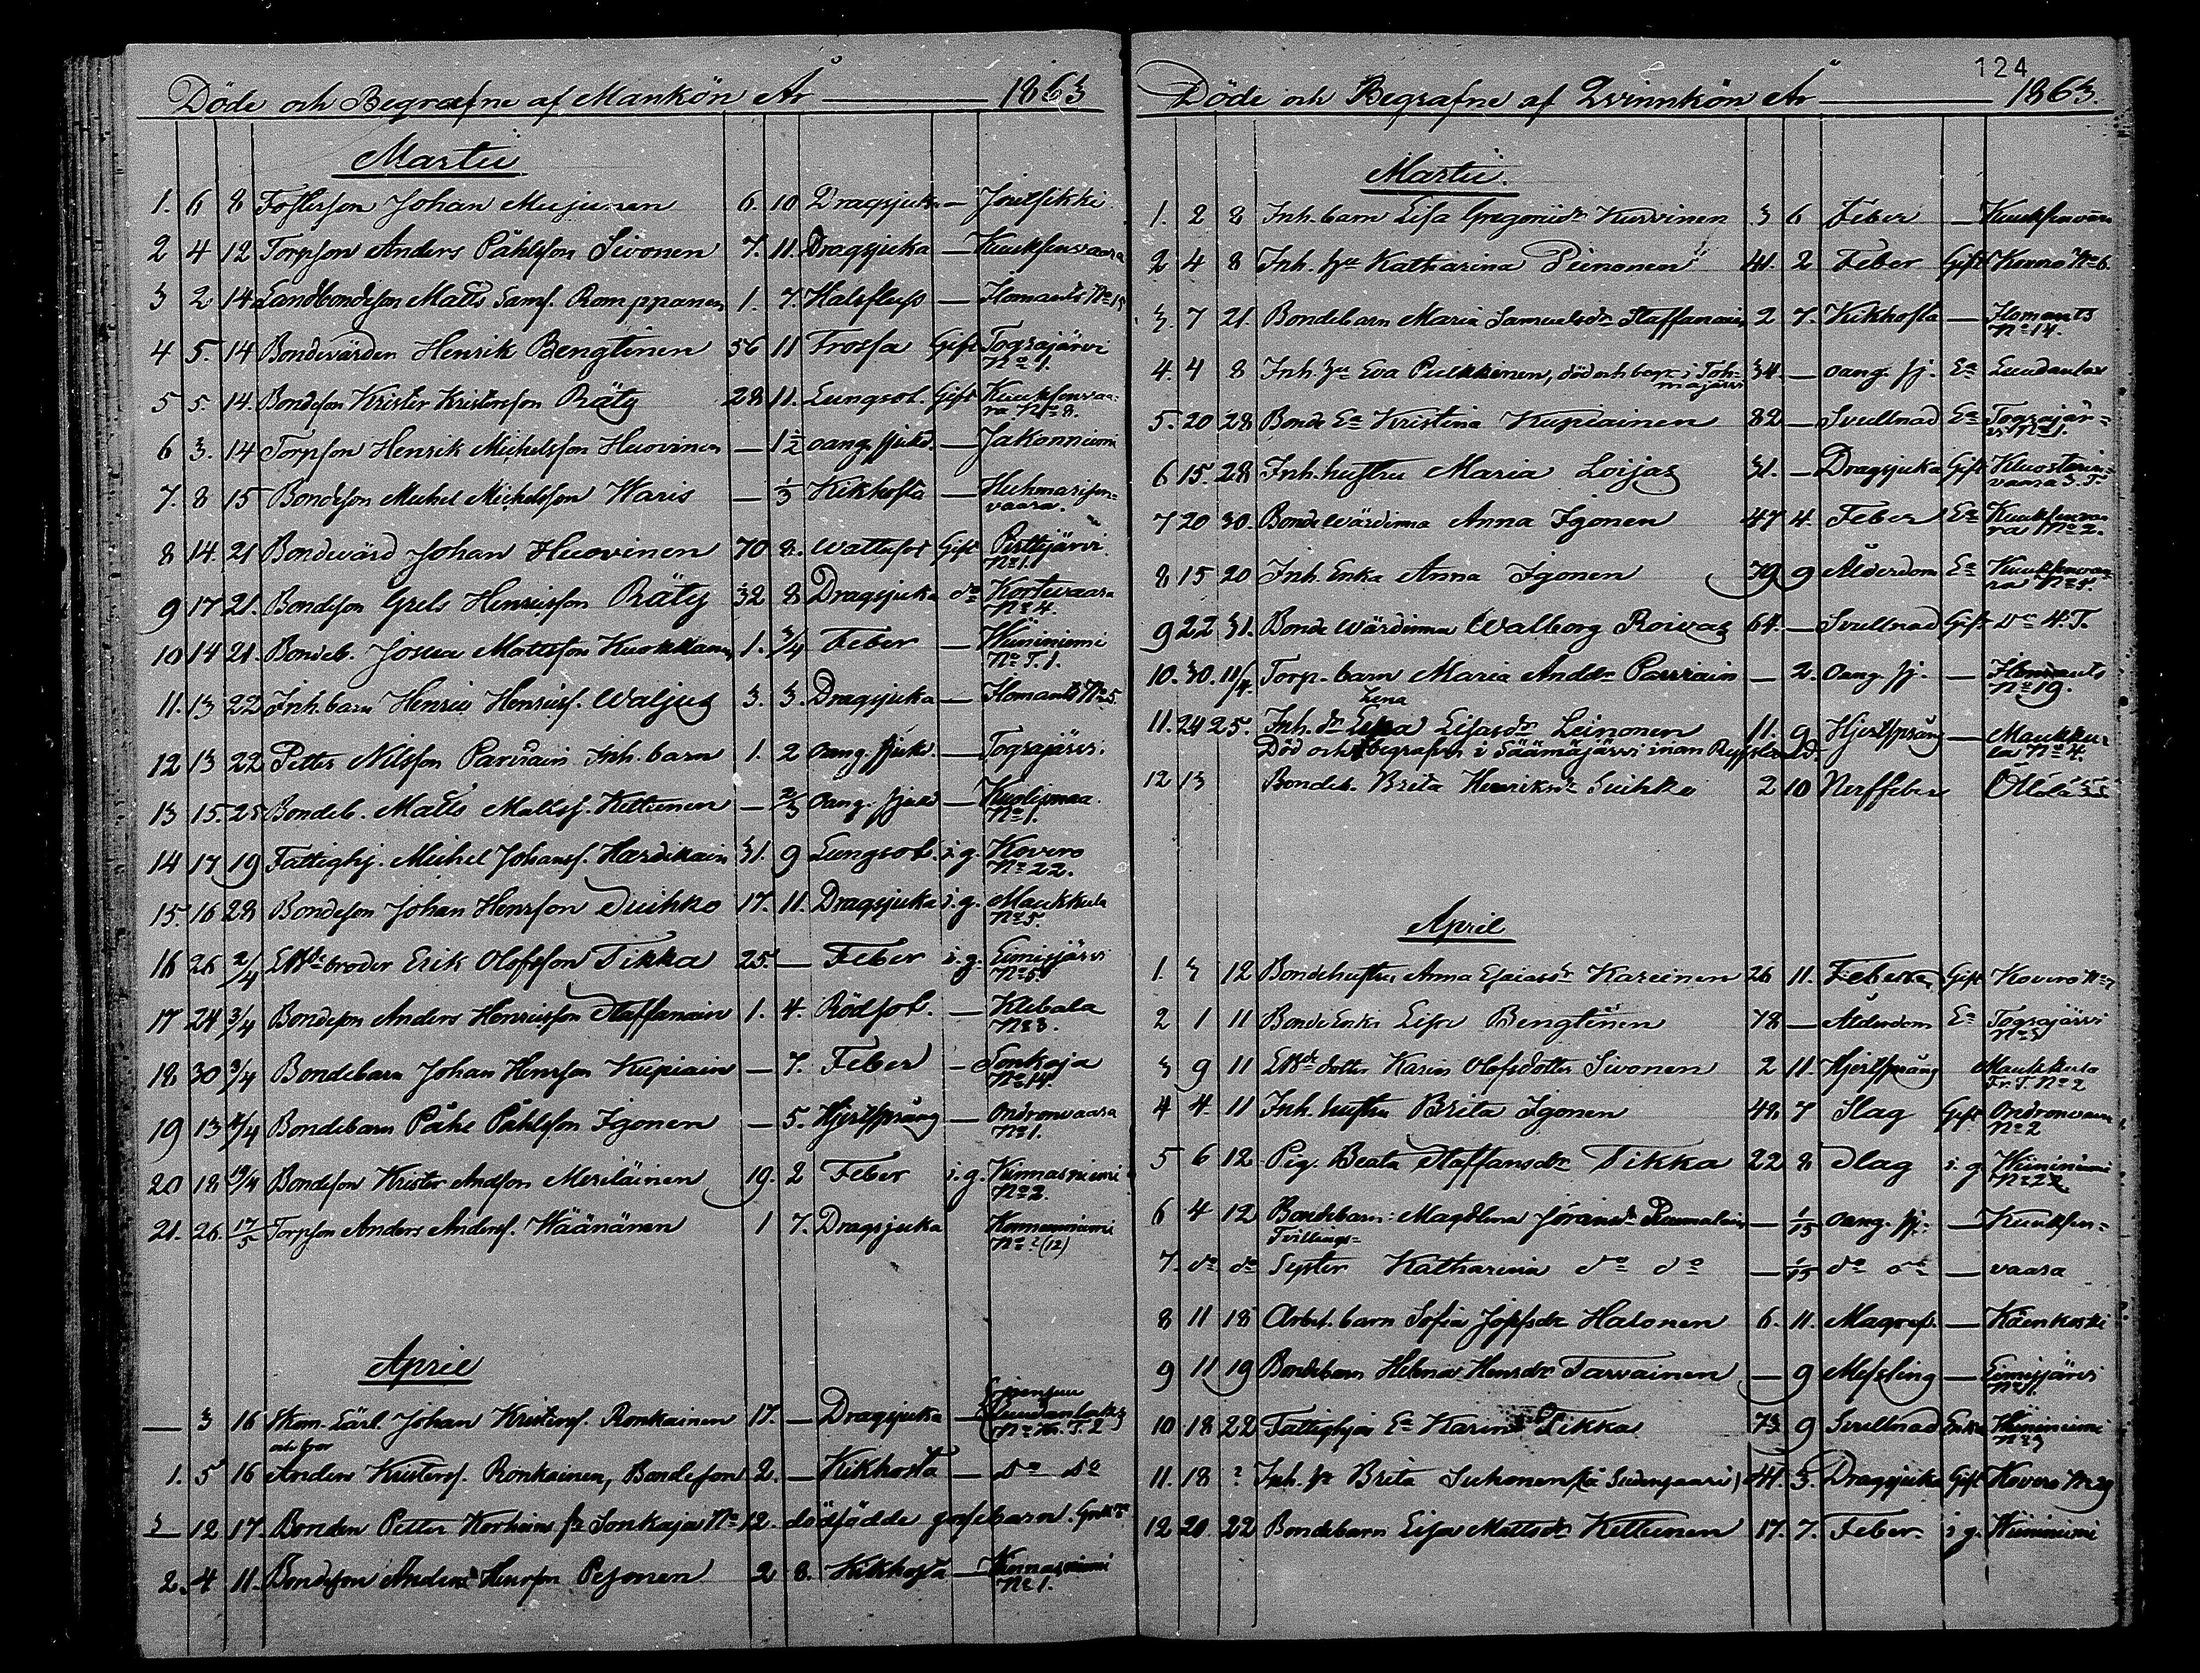 Döde och Begrafne af Mankön År 1863
Martii
1. 6 8 Fosterson Johan Mujunen 6. 10 Dragsjuka —
2 4 12 Torpson Anders Påhlsson Sivonen 7. 11. Dragsjuka — Kuuksenvaara
3 2 14 Landbondeson Matts Sams. Romppanen 1. 7. Halsfluss — Ilomants No 15
4 5. 14 Bondevärden Henrik Bengtinen 56 11 Frossa Gift Tograjärvi
No 1.
5 5. 14. Bondeson Krister Kristersson Räty 28 11. Lungsot. Gift Kuuksenvaa-
ra No 8.
6 3. 14 Torpson Henrik Michelsson Huovinen — 1½ oang. sjukd. — Jakonniemi
7. 8 15 Bondeson Michel Michelsson Waris — 1/3 Kikhosta — Huhmarisen-
vaara.
8 14. 21 Bondevärd Johan Huovinen 70 8. Wattusot Gift
No 1.
9 17 21. Bondeson Grels Henricsson Räty 32 8 Dragsjuka do Kortevaara
No 4.
10 14 21. Bondeb. Josua Mattsson Kuokkanen 1. 3/4 Feber — Huminiemi
No T. 1.
11. 13 22 Inh. barn Henric Henrics. Waljus 3. 3. Dragsjuka — Ilomants No 5.
12 13 22 Petter Nilsson Parviain Inh. barn 1. 2 oang. sjuk. — Tograjärvi.
13 15. 25 Bondeb. Matts Mattss. Kettunen — 2/3 oang. sjuk — Kuolismaa.
No 1.
14 17 19 Fattighj. Michel Johanss. Hardikain 31. 9 Lungsot. i. g. Kovero
No 22.
15. 16 28 Bondeson Johan Henrsson Suihko 17. 11. Dragsjuka i. g. Maukkula
No 5.
16 26 2/4 broder Erik Olofsson Tikka 25. — Feber i. g. Eimisjärvi
No 5.
17 24 3/4 Bondeson Anders Henricsson Staffanain 1. 4. Rödsot. — Klebala
No 3.
18 30 3/4 Bondebarn Johan Henrsson Kupiain — 7. Feber — Sonkaja
No 14.
19 13 4/4 Bondebarn Påhl Påhlsson Igonen — 5. Hjertsprång — Ondronvaara
No 1.
20 18 19/4 Bondeson Krister Andsson Meriläinen 19. 2 Feber i. g. Kinnasniemi
No 2.
21. 26. 17/5 Torpson Anders Anderss. Wäänänen 1 7. Dragsjuka
No ? (12)
April
— 3 16 Skom. Lärl. Johan Kristerss. Ronkainen 17. — Dragsjuka —
och bror
1. 5 16 Anders Kristerss. Ronkainen, Bondeson 2. — Kikhosta — do do
3 12 17. Bonden Petter Korhoin fr. Sonkaja No 12. dödfödde gossebarn.
2. 4 11. Bondeson Anders Henrson Pesonen 2 8. Kikhosta — Kinnasniemi
No 1.
124
Döde och Begrafne af Qvinnkön År 1863.
Martii.
1. 2 8 Inh. barn Lisa Gregoriidr Kurvinen 3 6 Feber — Kuuksenvaara
2 4 8 Inh. hu Katharina Piinonen 41. 2 Feber Gift Kovero No 6.
3. 7 21. Bondebarn Maria Samuelsdr Staffanain 2 7. Kikhosta — Ilomants
No 14.
4. 4 8 Inh. hu Eva Pulkkinen, död och begr. i Toh-
majärvi 34. — oang. sj. Ea
5. 20 28 Bonde Ea Kristina Kupiainen 82 — Svullnad Ea Tograjär-
vi No 1.
6 15. 28 Inh. hustru Maria Loijas 31. — Dragsjuka Gift Kluosterin-
vaara 3. T.
7 20 30. Bondewärdinna Anna Igonen 47 4. Feber Ea Kuuksenvaa
ra No 2.
8 15 20 Inh. Enka Anna Igonen 79 9 Ålderdom Ea Kuuksenvaa
ra No 4.
9 22 31. Bonde Wärdinna Walborg Roivas 64. — Svullnad Gift do 4. T.
10. 30. 11/4. Torp. barn Maria Anddr Parviain — 2. Oang. sj. — Ilomants
No 19.
Lena
11. 24 25. Inh. dr Lisa Lisasdr Leinonen 11. 9 Hjertsprång — Maukku-
la No 4.
Död och begrafven i Säämäjärvi inom Ryssland.
12 13 Bondeb. Brita Henriksdr Suihko 2 10 Nerffeber
April
1. 3 12 Bondehustru Anna Esaiasdr Kareinen 26 11. Feber Gift Kovero No 7
2 1 11 Bonde Enka Lisa Bengtinen 78 — Ålderdom Ea Tograjärvi
No 3
3 9 11 dotter Karin Olofsdotter Sivonen 2 11. Hjertsprång Maukkula
Fr. T. No 2
4 4. 11 Inh. hustru Brita Igonen 48. 7 Slag Gift Ondronvaara
No 2
5 6 12 Pig. Beata Staffansdr Tikka 22 8 Slag i. g Huminiemi
No 22
6 4 12 Bondebarn: Magdlena Jöransdr Raunalain — 1/15 oang. sj. — Kuuksen-
Tvillings-
7. do do Syster Katharina do do — 1/15 do do — vaara
8 11 18 Arbet. barn Sofia Josefsdr Halonen 6. 11. Magref. — Käenkoski
9 11 19 Bondebarn Helena Henrsdr Tarvainen — 9 Messling — Eimisjärvi
No 11.
10 18 22 Fattighjon Ea Karin Tikka 73. 9 Svullnad Enka Huminiemi
No 3
11. 18 ? Inh. hr Brita Suhonen 44. 3. Dragsjuka Gift Kovero No 29
12 20. 22 Bondebarn Lisa Mattsdr Kettunen 17. 7. Feber i g. Huminiemi